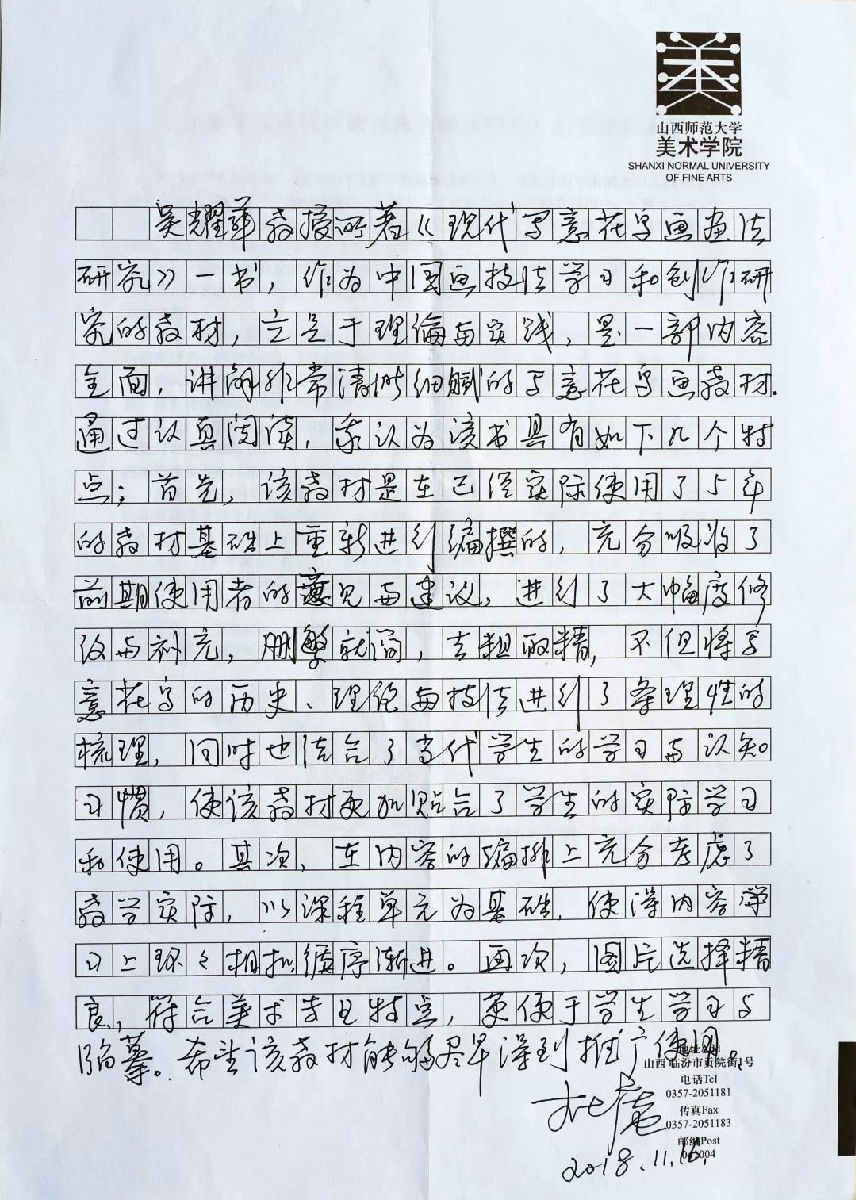 山西师范大学
美术学院
SHANXI NORMAL UNIVERSITY
OF FINE ARTS
吴耀华教授所著《现代写意花鸟画画法
研究》一书，作为中国画技法学习和创作研
究的教材，立足于理论与实践，是一部内容
全面，讲解非常清晰细腻的写意花鸟画教材.
通过认真阅读，我认为该书具有如下几个特
点；首先，该教材是在已经实际使用了5年
的教材基础上重新进行编撰的，充分吸收了
前期使用者的意见与建议，进行了大幅度修
改与补充，删繁就简，去粗取精，不但将写
意花鸟的历史、理论与技法进行了条理性的
梳理，同时也结合了当代学生的学习与认知
习惯，使该教材更加贴合了学生的实际学习
和使用。其次，在内容的编排上充分考虑了
教学实际，以课程单元为基础，使得内容学
习上环々相扣循序渐进。再次，图片选择精
良，符合美术专业特点，更便于学生学习与
临摹。希望该教材能够尽早得到推广使用。
山西临汾市贡院街1号
电话Tel
0357-2051181
传真Fax
0357-2051183
邮编Post
2018.11.16.